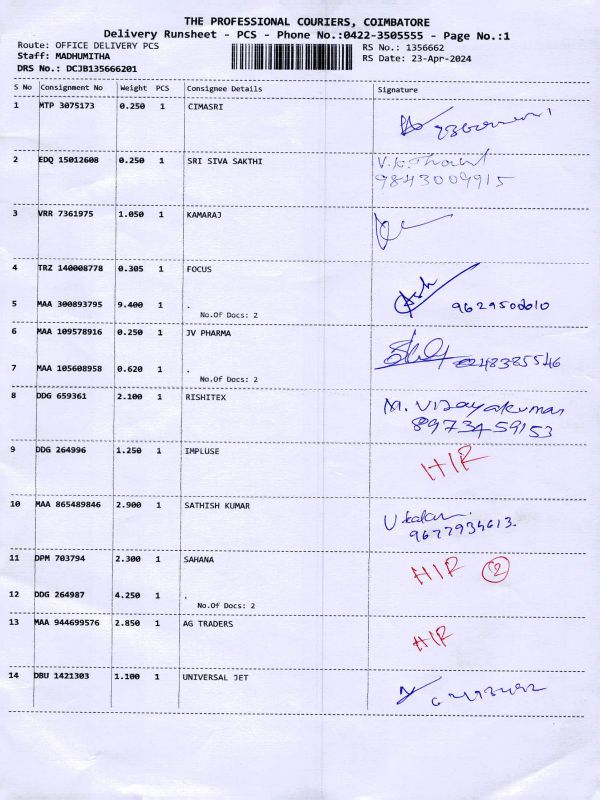 THE PROFESSIONAL COURIERS, COIMBATORE
Delivery Runsheet - PCS - Phone No.:0422-3505555 - Page No.:1
Route: OFFICE DELIVERY PCS
RS No.: 1356662
Staff: MADHUMITHA
RS Date: 23-Apr-2024
DRS No.: DCJB135666201
S No Consignment No Weight PCS Consignee Details Signature
1 MTP 3075173 0.250 1 CIMASRI
2 EDQ 15012608 0.250 1 SRI SIVA SAKTHI
9843009915
3 VRR 7361975 1.050 1 KAMARAJ
4 TRZ 140008778 0.305 1 FOCUS
5 MAA 300893795 9.400 1 .
No.Of Docs: 2
6 MAA 109578916 0.250 1 JV PHARMA
7 MAA 105608958 0.620 1 .
No.Of Docs: 2
8 DDG 659361 2.100 1 RISHITEX M. Vijayakumar
8973459153
9 DDG 264996 1.250 1 IMPLUSE HIR
10 MAA 865489846 2.900 1 SATHISH KUMAR
11 DPM 703794 2.300 1 SAHANA HIR 2
12 DDG 264987 4.250 1 .
No.Of Docs: 2
13 MAA 944699576 2.850 1 AG TRADERS HIR
14 DBU 1421303 1.100 1 UNIVERSAL JET